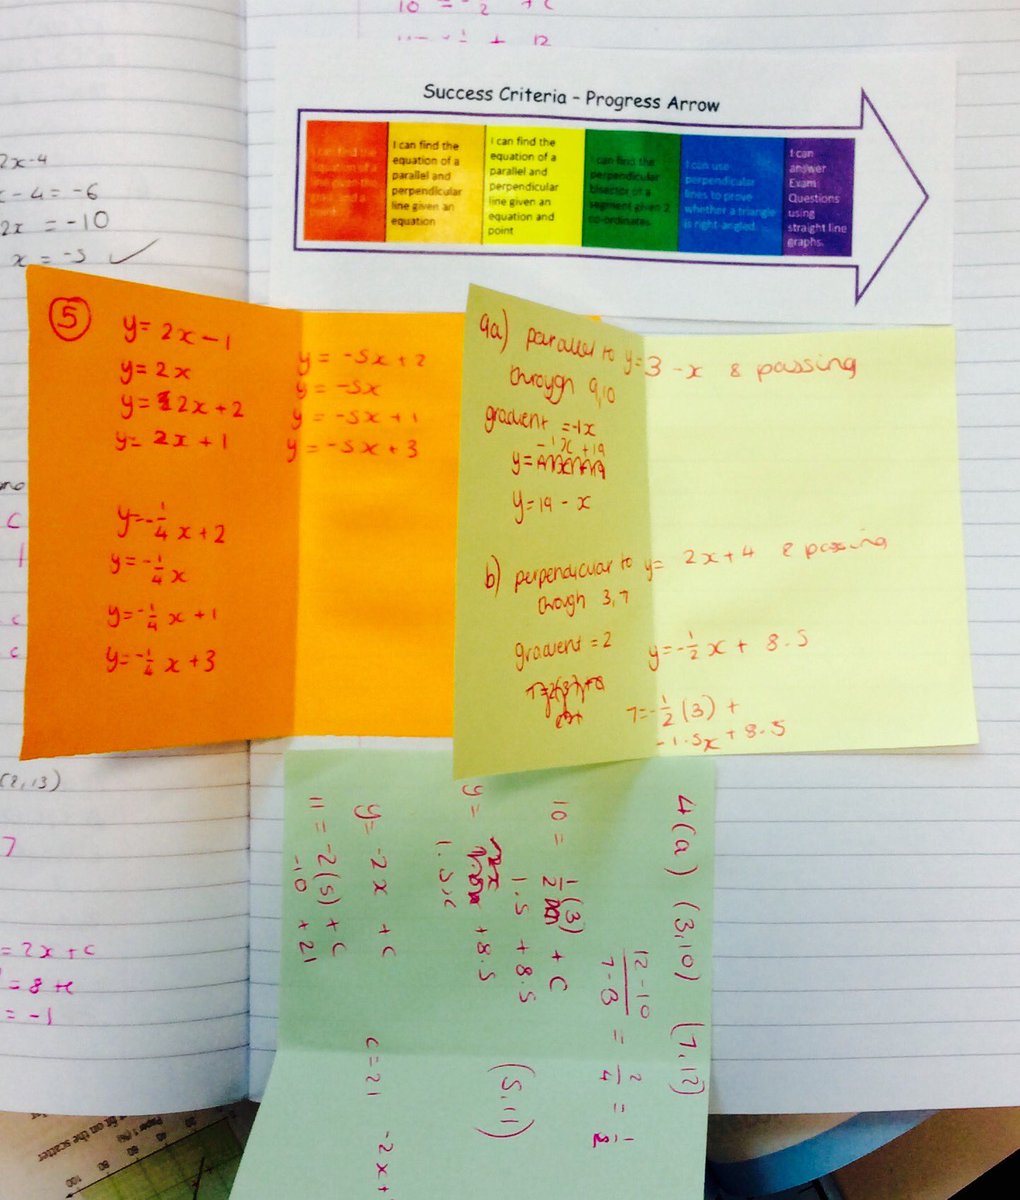 10 = -2 + c
12
Success Criteria - Progress Arrow
I can find the
equation of a
parallel and
perpendicular
line given an
equation
I can find the
equation of a
parallel and
perpendicular
line given an
equation and
point
I can find the
perpendicular
bisector of a
segment given 2
co-ordinates.
I can use
perpendicular
lines to prove
whether a triangle
is right angled.
I can
answer
Exam
Questions
using
straight line
graphs.
2x-4
x-4=-6
2x = -10
x = -5 ✓
5
y= 2x-1
y= 2x
y= 2x+2
y= 2x+1
y=-1/4 x+2
y=-1/4 x
y=-1/4 x+1
y=-1/4 x+3
y = -5x+2
y = -5x
y = -5x+1
y = -5x+3
9a) parallel to y=3-x & passing
through 9,10
gradient =-1x
-1x+19
y=
y=19-x
b) perpendicular to y= 2x+4 & passing
through 3,7
gradient =2
y=-1/2 x + 8.5
7=-1/2 (3) +
-1.5x + 8.5
4(a) (3,10) (7,12)
12-10/7-3 = 2/4 = 1/2
10 = 1/2 (3) + c
1.5 + 8.5
y= + 8.5
1.5x
(5,11)
y= -2x + c
c=21
-2x+
11 = -2(5) + c
-10 + 21
C
c
c
(8,13)
7
= 2x+c
= 8+c
= -1
on the scatter
Paper 1 (%)
100
80
60
40